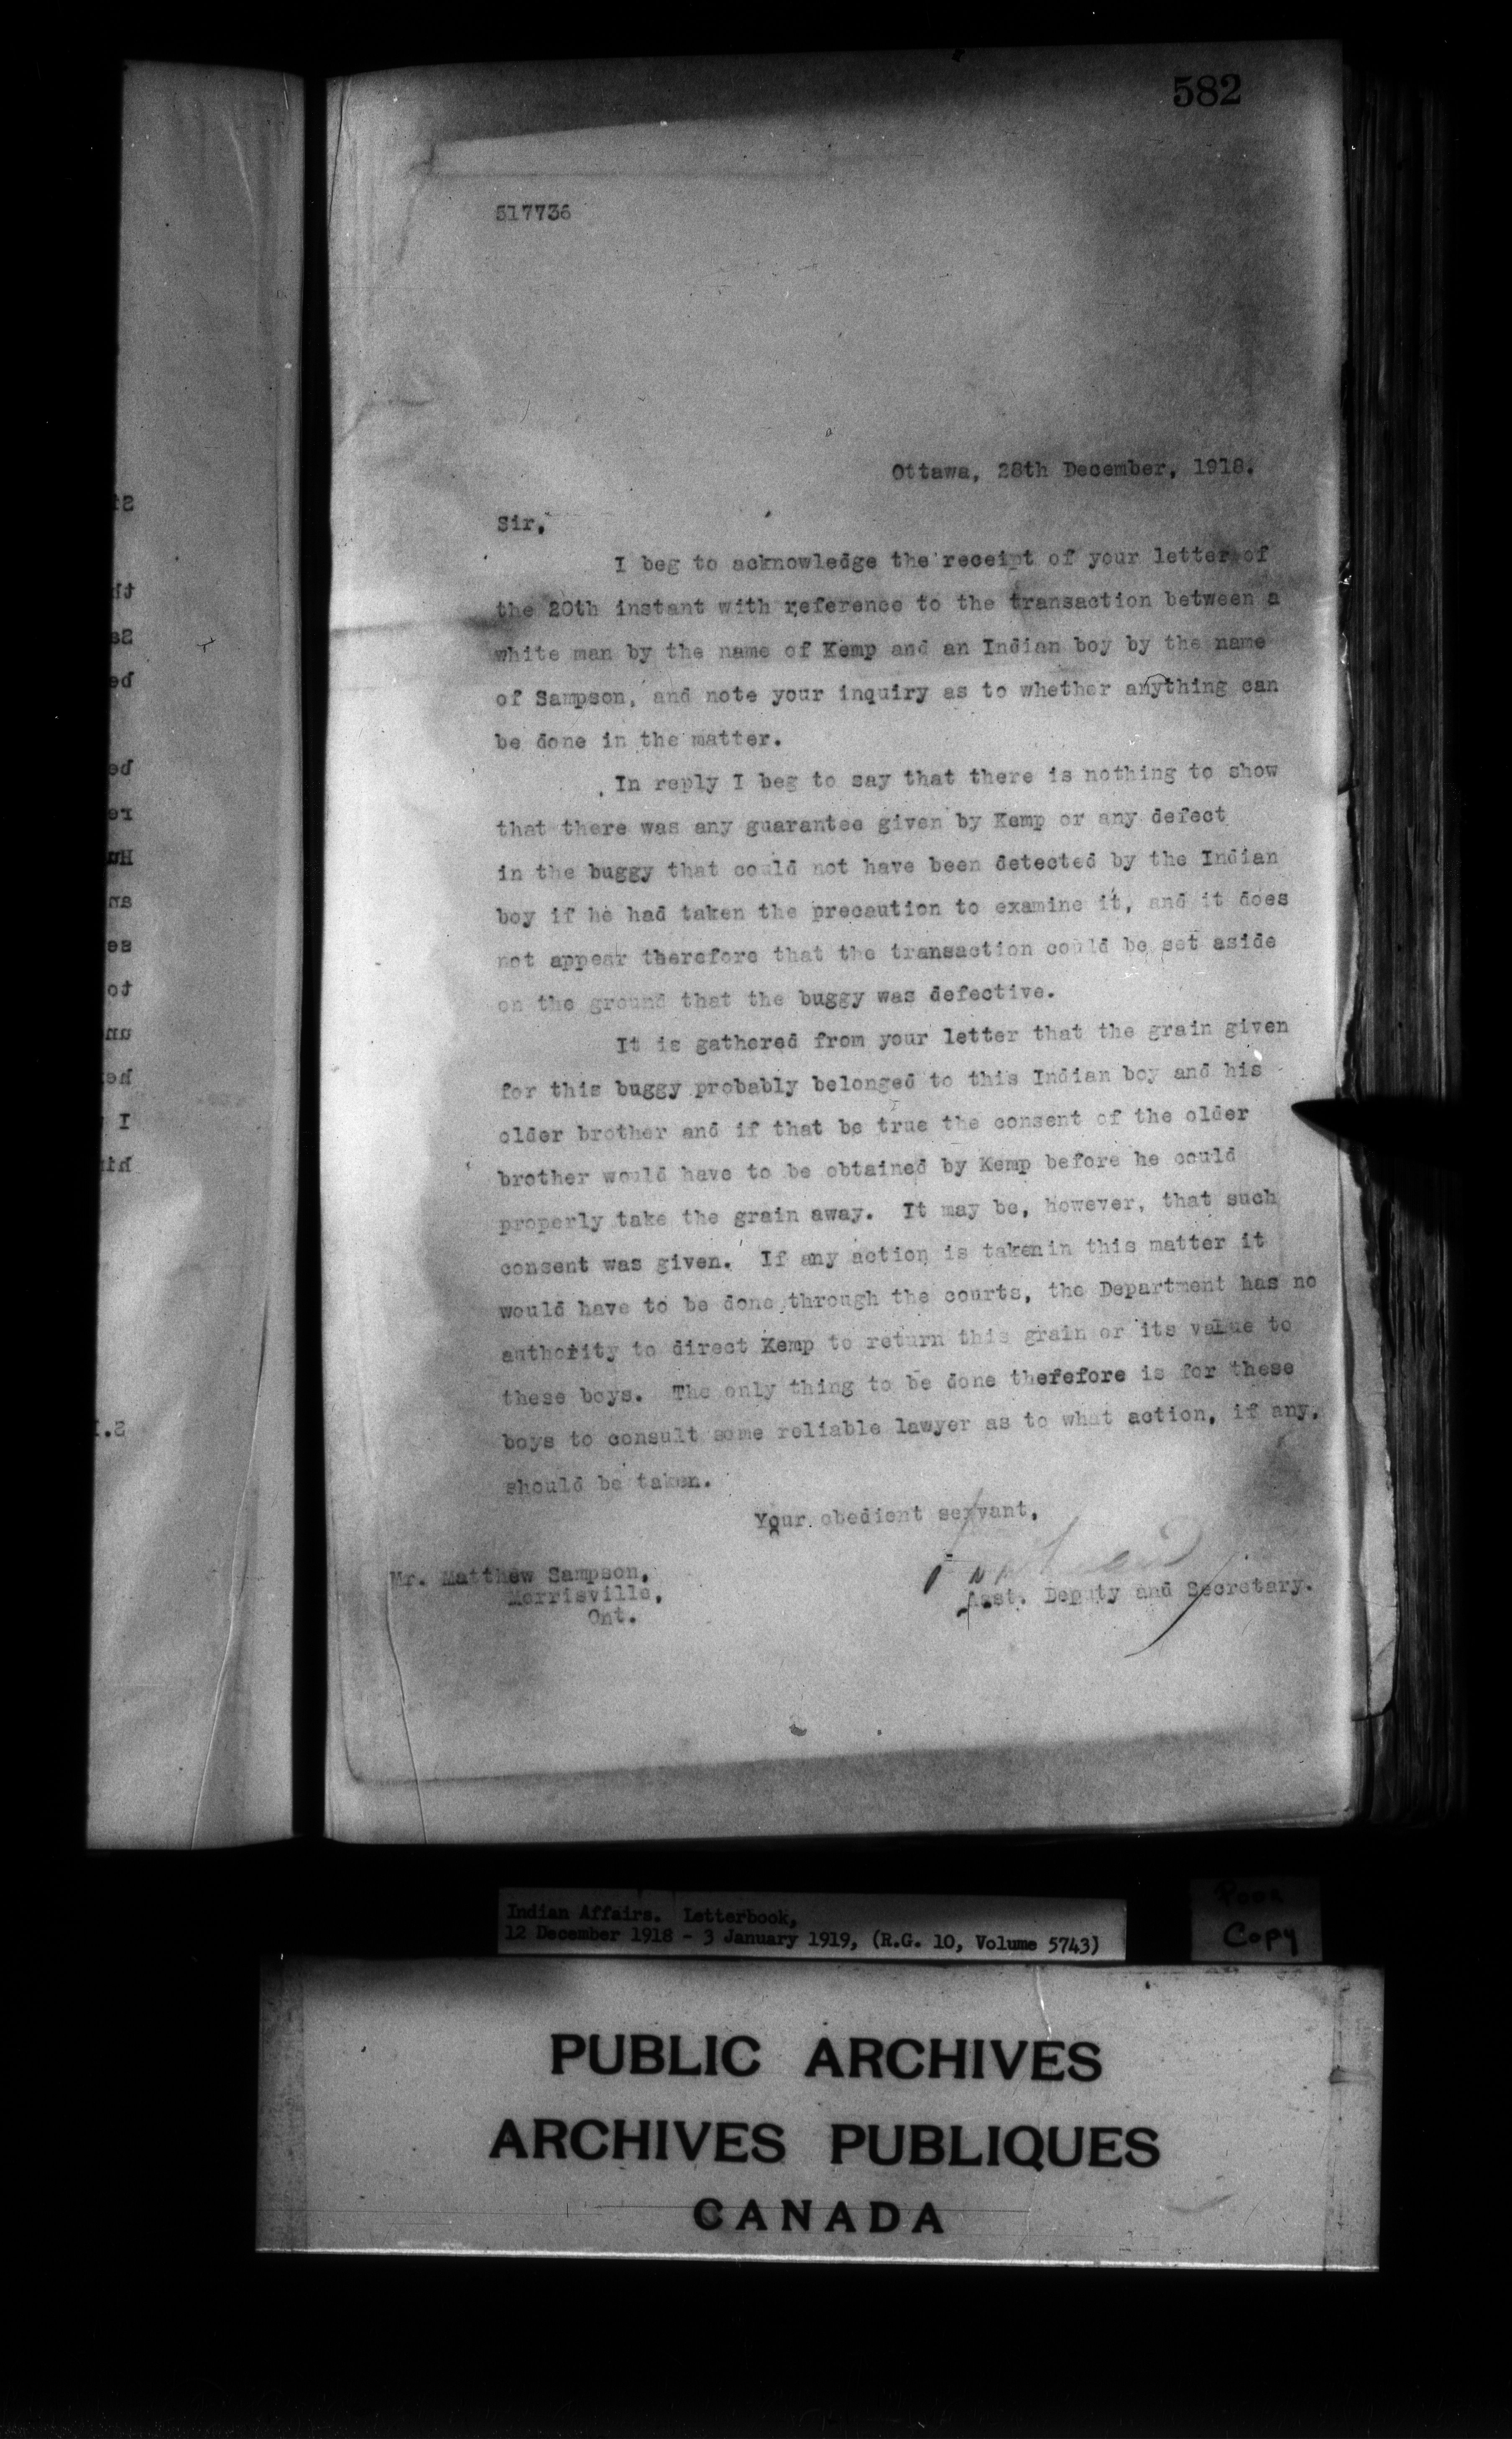 582
517736
Ottawa, 28th December, 1918.
Sir,
I beg to acknowledge the receipt of your letter of
the 20th instant with reference to the transaction between a
white man by the name of Kemp and an Indian boy by the name
of Sampson, and note your inquiry as to whether anything can
be done in the matter.
In reply I beg to say that there is nothing to show
that there was any guarantee given by Kemp or any defect
in the buggy that could not have been detected by the Indian
boy if he had taken the precaution to examine it, and it does
not appear therefore that the transaction could be set aside
on the ground that the buggy was defective.
It is gathered from your letter that the grain given
for this buggy probably belonged to this Indian boy and his
older brother and if that be true the consent of the older
brother would have to be obtained by Kemp before he could
properly take the grain away. It may be, however, that such
consent was given. If any action is taken in this matter it
would have to be done through the courts, the Department has no
authority to direct Kemp to return this grain or its value to
these boys. The only thing to be done therefore is for these
boys to consult some reliable lawyer as to what action, if any,
should be taken.
Your obedient servant,
Asst. Deputy and Secretary.
Mr. Matthew Sampson,
Morrisville,
Ont.
Indian Affairs. Letterbook,
12 December 1918 - 3 January 1919, (R.G. 10, Volume 5743)
Poor
Copy
PUBLIC ARCHIVES
ARCHIVES PUBLIQUES
CANADA